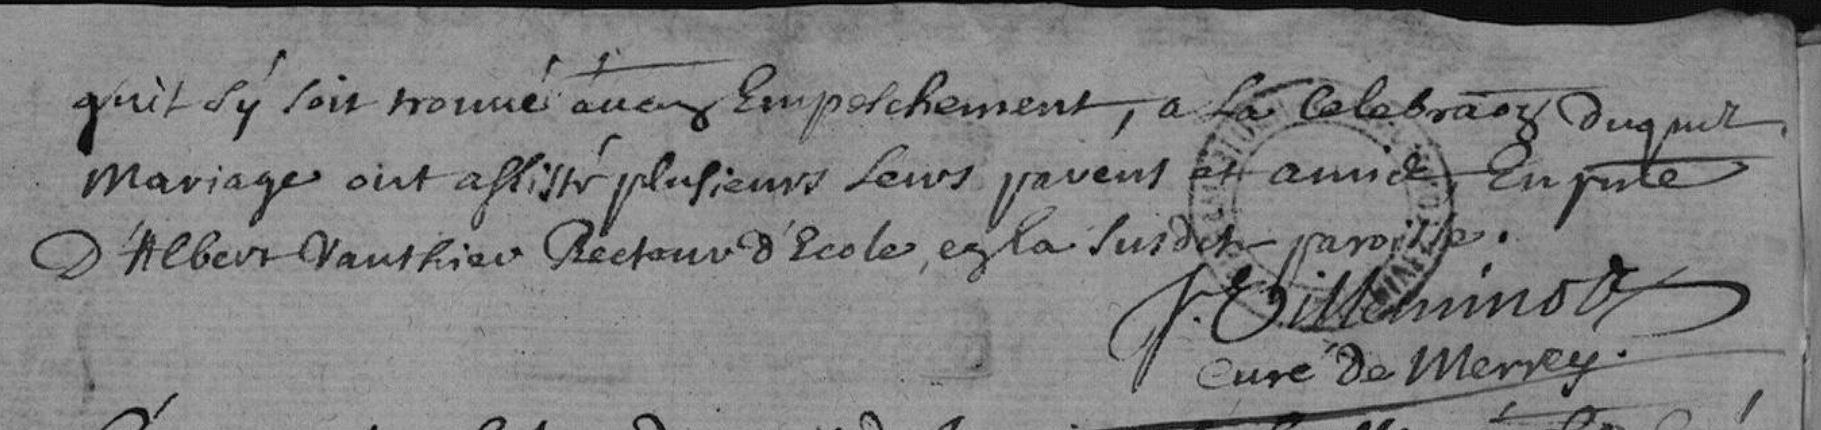 qu'il s'y soit trouvé aucun Empeschement, a la Celebraõn duquel
Mariage ont assisté plusieurs Leurs parens et amis, En pnce
D'Albert Vauthier Recteur d'Ecole, en la susdite paroisse.
Villeminot
Curé de Merrey.